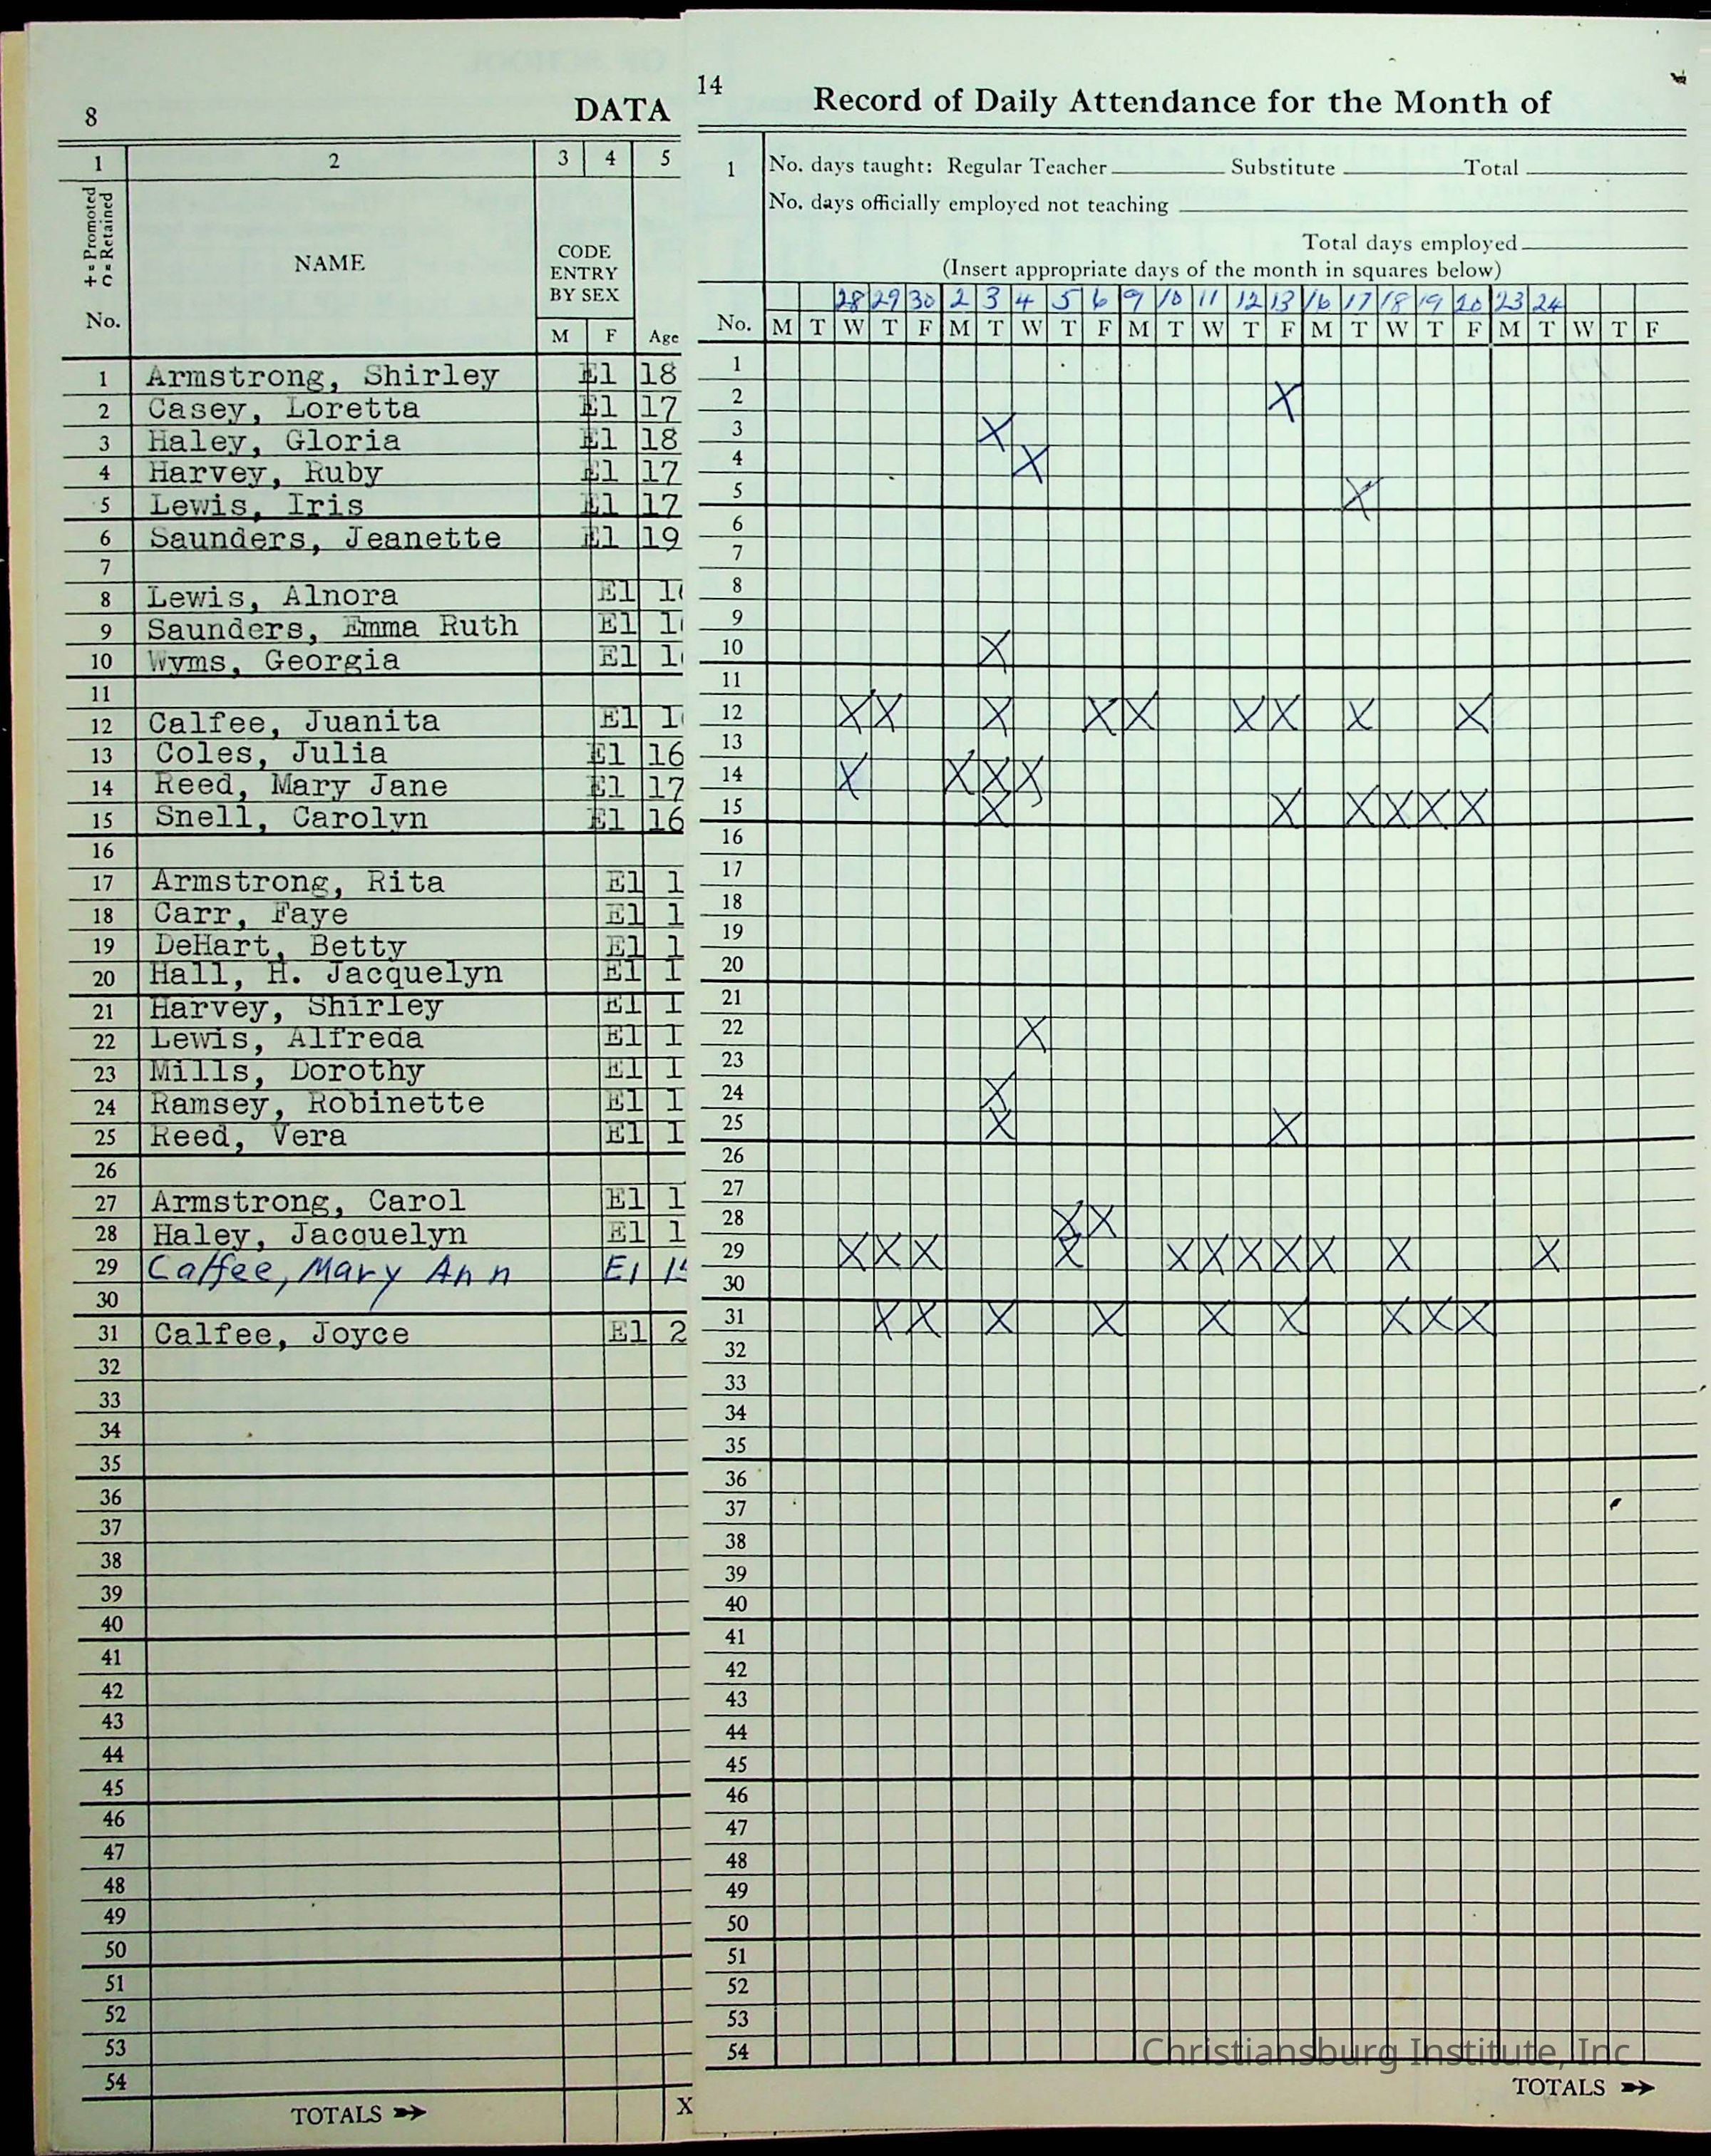 8
DATA
1 2 3 4 5
+ = Promoted
O = Retained
No.
NAME
CODE
ENTRY
BY SEX
M F Age
1 Armstrong, Shirley El 18
2 Casey, Loretta El 17
3 Haley, Gloria El 18
4 Harvey, Ruby El 17
5 Lewis, Iris El 17
6 Saunders, Jeanette El 19
7
8 Lewis, Alnora El 1
9 Saunders, Emma Ruth El 1
10 Wyms, Georgia El 1
11
12 Calfee, Juanita El 1
13 Coles, Julia El 16
14 Reed, Mary Jane El 17
15 Snell, Carolyn El 16
16
17 Armstrong, Rita El 1
18 Carr, Faye El 1
19 DeHart, Betty El 1
20 Hall, H. Jacquelyn El 1
21 Harvey, Shirley El 1
22 Lewis, Alfreda El 1
23 Mills, Dorothy El 1
24 Ramsey, Robinette El 1
25 Reed, Vera El 1
26
27 Armstrong, Carol El 1
28 Haley, Jacquelyn El 1
29 Calfee, Mary Ann El 1
30
31 Calfee, Joyce El 2
32
33
34
35
36
37
38
39
40
41
42
43
44
45
46
47
48
49
50
51
52
53
54
TOTALS X
14
Record of Daily Attendance for the Month of
1 No. days taught: Regular Teacher Substitute Total
No. days officially employed not teaching
Total days employed
(Insert appropriate days of the month in squares below)
28 29 30 2 3 4 5 6 9 10 11 12 13 16 17 18 19 20 23 24
No. M T W T F M T W T F M T W T F M T W T F M T W T F
1
2 X
3 X
4 X
5 X
6
7
8
9
10 X
11
12 X X X X X X X X X
13
14 X X X X
15 X X X X X X
16
17
18
19
20
21
22 X
23
24 X
25 X X
26
27
28 X X
29 X X X X X X X X X X X
30
31 X X X X X X X X X
32
33
34
35
36
37
38
39
40
41
42
43
44
45
46
47
48
49
50
51
52
53
54
Christiansburg Institute, Inc
TOTALS